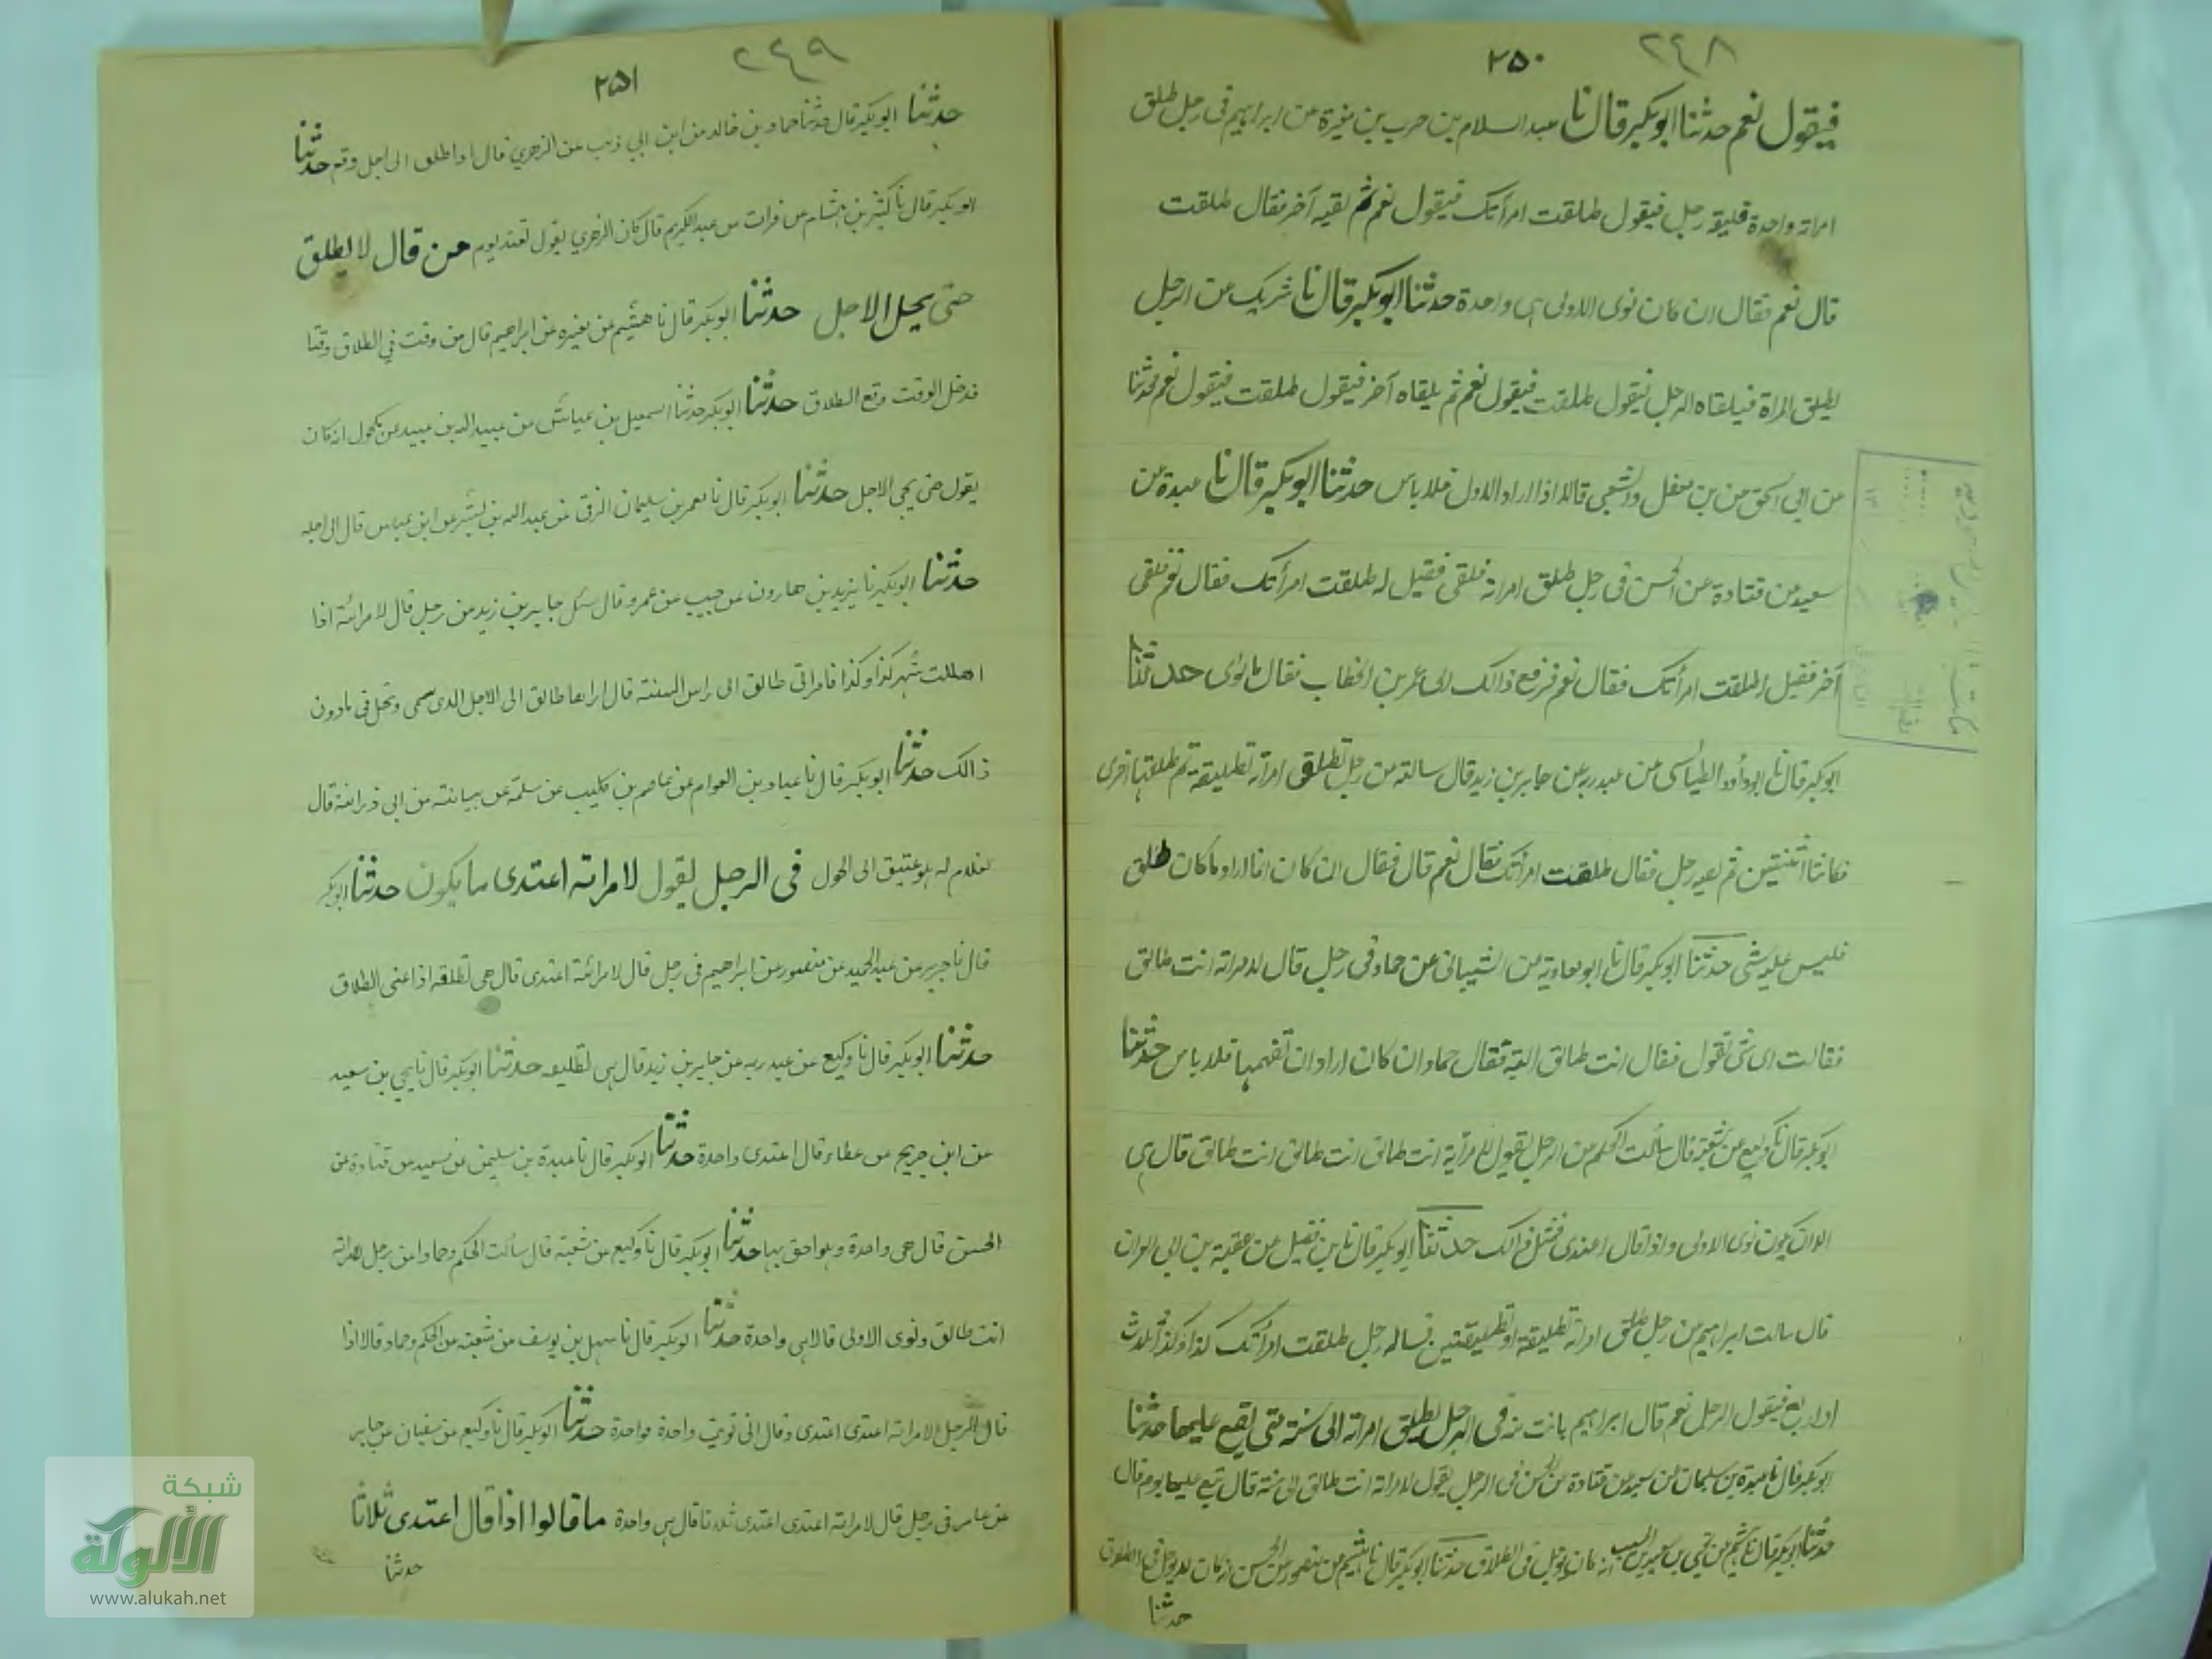 ٢٥٠ ٢٤٨
فيقول نعم حدثنا ابوبكر قال نا عبد السلام بن حرب بن مغيرة عن ابراهيم فى رجل طلق
امراته واحدة فليقه رجل فيقول طلقت امرأتك فيقول نعم ثم لقيه آخر فقال طلقت
قال نعم فقال ان كان نوى الاولى هى واحدة حدثنا ابوبكر قال نا شريك عن الرجل
يطلق المراة فيلقاه الرجل فيقول طلقت فيقول نعم ثم يلقاه آخر فيقول طلقت فيقول نعم حدثنا
عن ابى اسحق عن بن مغفل والشعبى قالا اذا اراد الاول فلا باس حدثنا ابوبكر قال نا عبدة عن
سعيد عن قتادة عن الحسن فى رجل طلق امراته فلقى فقيل له طلقت امرأتك فقال نعم فلقى
آخر فقيل اطلقت امرأتك فقال نعم فرفع ذالك الى عمر بن الخطاب فقال ما نوى حدثنا
ابوبكر قال نا ابوداود الطيالسى عن عبد ربه عن جابر بن زيد قال سالته عن رجل تطلقى امراته تطليقة ثم طلقها اخرى
فكانتا اثنتين ثم لقيه رجل فقال طلقت امرأتك فقال نعم قال فقال ان كان انما اراد ما كان طلق
فليس عليه شى حدثنا ابوبكر قال نا ابو معاوية عن الشيبانى عن حماد فى رجل قال لامراته انت طالق
فقالت اى شى تقول فقال انت طالق البتة فقال حماد ان كان اراد ان تفهمها فلا باس حدثنا
ابوبكر قال نا وكيع عن شعبة قال سألت الحكم عن الرجل يقول لامرأته انت طالق انت طالق انت طالق قال هى
الا ان يكون نوى الاولى واذا قال اعتدى فمثل ذالك حدثنا ابوبكر قال نا بن فضيل عن عقبة بن ابى العيزار
قال سالت ابراهيم عن رجل طلق امراته تطليقة او تطليقتين فساله رجل طلقت امرأتك كذا وكذا ثلاث
او اربع فيقول الرجل نعم قال ابراهيم بانت منه فى الرجل يطلق امراته الى سنة متى يقع عليها حدثنا
ابوبكر قال نا عبدة بن سليمان عن سعيد عن قتادة عن الحسن فى الرجل يقول لامراته انت طالق الى سنة قال تقع عليها يوم قال
حدثنا ابوبكر قال نا هشيم عن يحي بن سعيد بن المسيب انه كان يوجل فى الطلاق حدثنا ابوبكر قال نا هشيم عن منصور عن الحسن انه كان لا يوجل فى الطلاق
حدثنا
٢٥١ ٢٤٩
حدثنا ابوبكر قال حدثنا حماد بن خالد عن ابن ابي ذئب عن الزهري قال اذا طلق الى اجل وقع حدثنا
ابوبكر قال نا كثير بن هشام عن فرات عن عبد الكريم قال كان الزهري يقول تعتد يوم من قال لا يطلق
حتى يحل الاجل حدثنا ابوبكر قال نا هشيم عن مغيره عن ابراهيم قال من وقت في الطلاق وقتا
فدخل الوقت وقع الطلاق حدثنا ابوبكر حدثنا اسمعيل بن عياش عن عبيد الله بن عبيد عن مكحول انه كان
يقول حتى يجي الاجل حدثنا ابوبكر قال نا معمر بن سليمان الرقى عن عبد الله بن بشر عن ابن عباس قال الى اجله
حدثنا ابوبكر نا يزيد بن هارون عن حبيب عن عمرو قال سئل جابر بن زيد عن رجل قال لامراته اذا
اهللت شهر كذا وكذا فامراتى طالق الى راس السنة قال اراها طالق الى الاجل الذى سمى وتحل فى ما دون
ذالك حدثنا ابوبكر قال نا عباد بن العوام عن عاصم بن كليب عن سلمة عن عن ابى ذر انه قال
لغلام له هو عتيق الى الحول فى الرجل يقول لامراته اعتدى ما يكون حدثنا ابوبكر
قال نا جرير عن عبد الحميد عن منصور عن ابراهيم فى رجل قال لامراته اعتدى قال هى تطلقه اذا عنى الطلاق
حدثنا ابوبكر قال نا وكيع عن عبد ربه عن جابر بن زيد قال هى تطليقه حدثنا ابوبكر قال نا يحي بن سعيد
عن ابن جريج عن عطاء قال اعتدى واحدة حدثنا ابوبكر قال نا عبدة بن سليمن عن سعيد عن قتادة عن
الحسن قال هى واحدة وهو احق بها حدثنا ابوبكر قال نا وكيع عن شعبة قال سألت الحكم وحمادا عن رجل لامراته
انت طالق ونوى الاولى قالا هى واحدة حدثنا ابوبكر قال نا سهل بن يوسف عن شعبة عن الحكم وحماد قالا اذا
قال الرجل لامراته اعتدى اعتدى وقال انى نويت واحدة فواحدة حدثنا ابوبكر قال نا وكيع عن سفيان عن جابر
عن عامر فى رجل قال لامراته اعتدى اعتدى اعتدى ثلاثا قال هى واحدة ما قالوا اذا قال اعتدى ثلاثا
حدثنا
شبكة
الألوكة
www.alukah.net